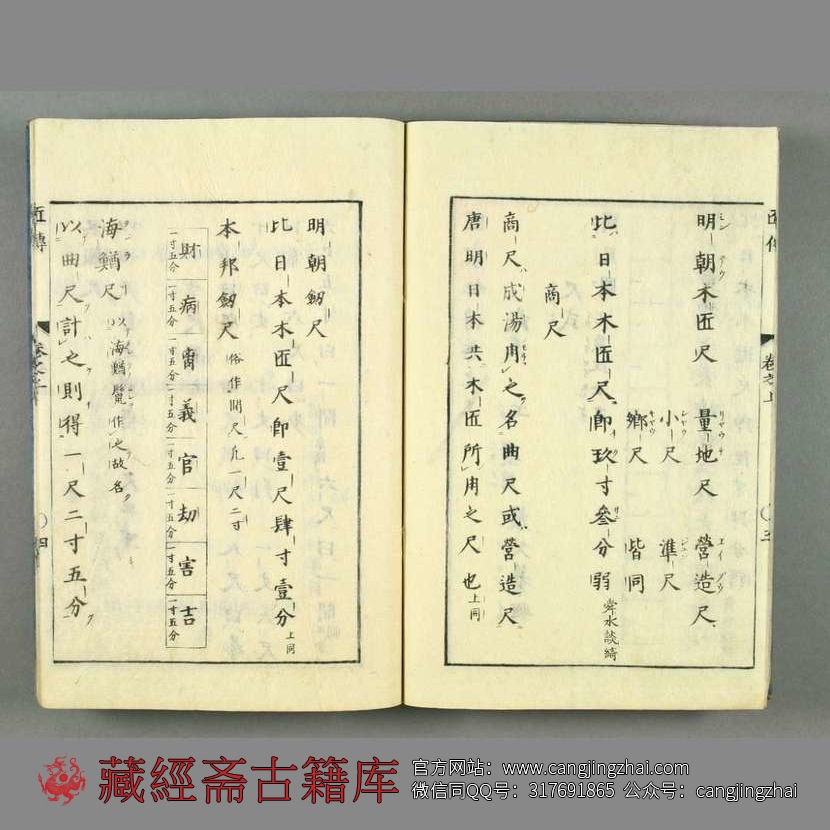 明朝木匠尺 量地尺 營造尺
小尺 準尺
鄉尺 皆同
此日本木匠尺即玖寸叄分弱 舜水談綺
商尺
商尺成湯用之名曲尺或營造尺
唐明日本共木匠所用之尺也 上同
卷之上
三
明朝劒尺
此日本木匠尺即壹尺肆寸壹分 上同
本邦劒尺 俗作間尺九一尺二寸
財 病 離 義 官 劫 害 吉
一寸五分 一寸五分 一寸五分 一寸五分 一寸五分 一寸五分 一寸五分 一寸五分
海鰌尺 以海鰌鬛作之故名
以曲尺計之則得一尺二寸五分
匠傳
四
藏經斋古籍库
官方网站：www.cangjingzhai.com
微信同QQ号：317691865 公众号：cangjingzhai